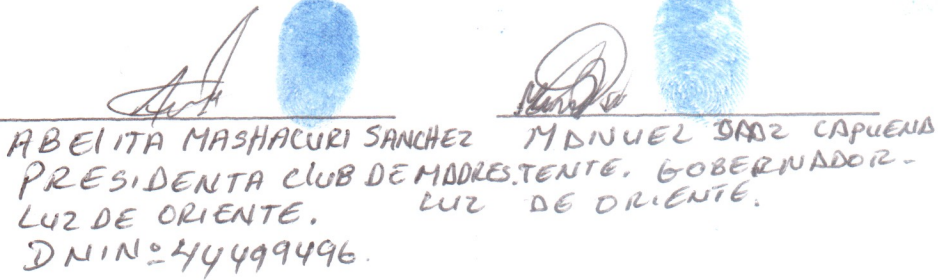 ABELITA MASHACURI SANCHEZ
PRESIDENTA CLUB DE MADRES.
LUZ DE ORIENTE.
DNI Nº 44499496.
MANUEL DAAZ CAPUENA
TENTE. GOBERNADOR.
LUZ DE ORIENTE.